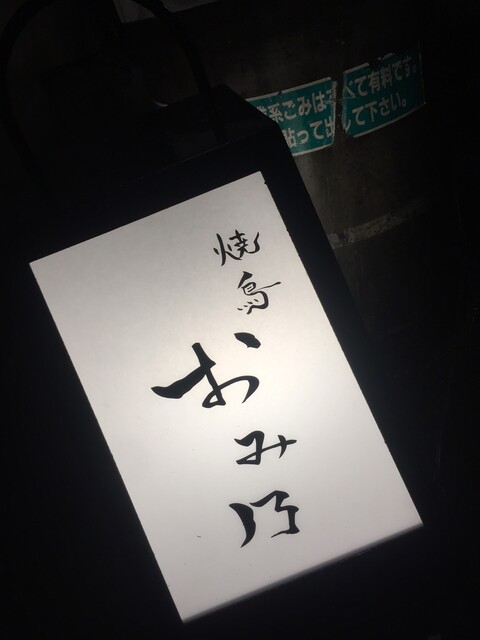 焼鳥
おみ乃
系ごみは
べて有料です。
貼って出
して下さい。